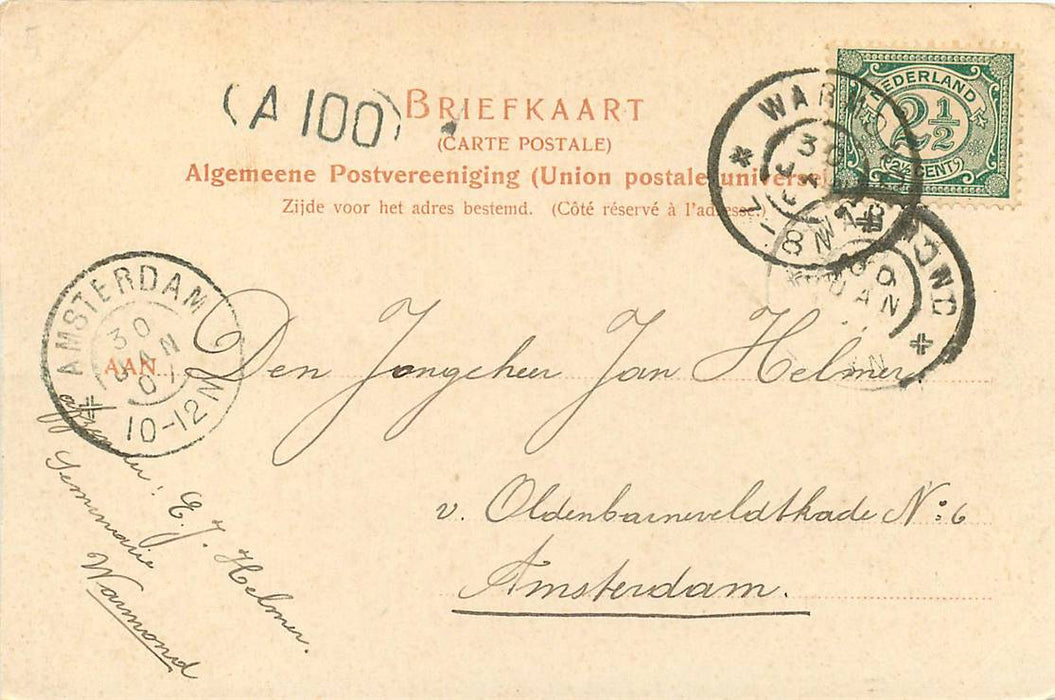 (A 100)
BRIEFKAART
(CARTE POSTALE)
Algemeene Postvereeniging (Union postale universelle)
Zijde voor het adres bestemd. (Côté réservé à l'adresse.)
NEDERLAND
2½
2½ CENT
WARMOND
30 JAN
7-8 N
WARMOND
30 JAN
AMSTERDAM
30 JAN 01
10-12 M
AAN
Den Jongeheer Jan Helmer
v. Oldenbarneveldtkade No: 6
Amsterdam.
afzender: E. J. Helmer.
Seminarie
Warmond